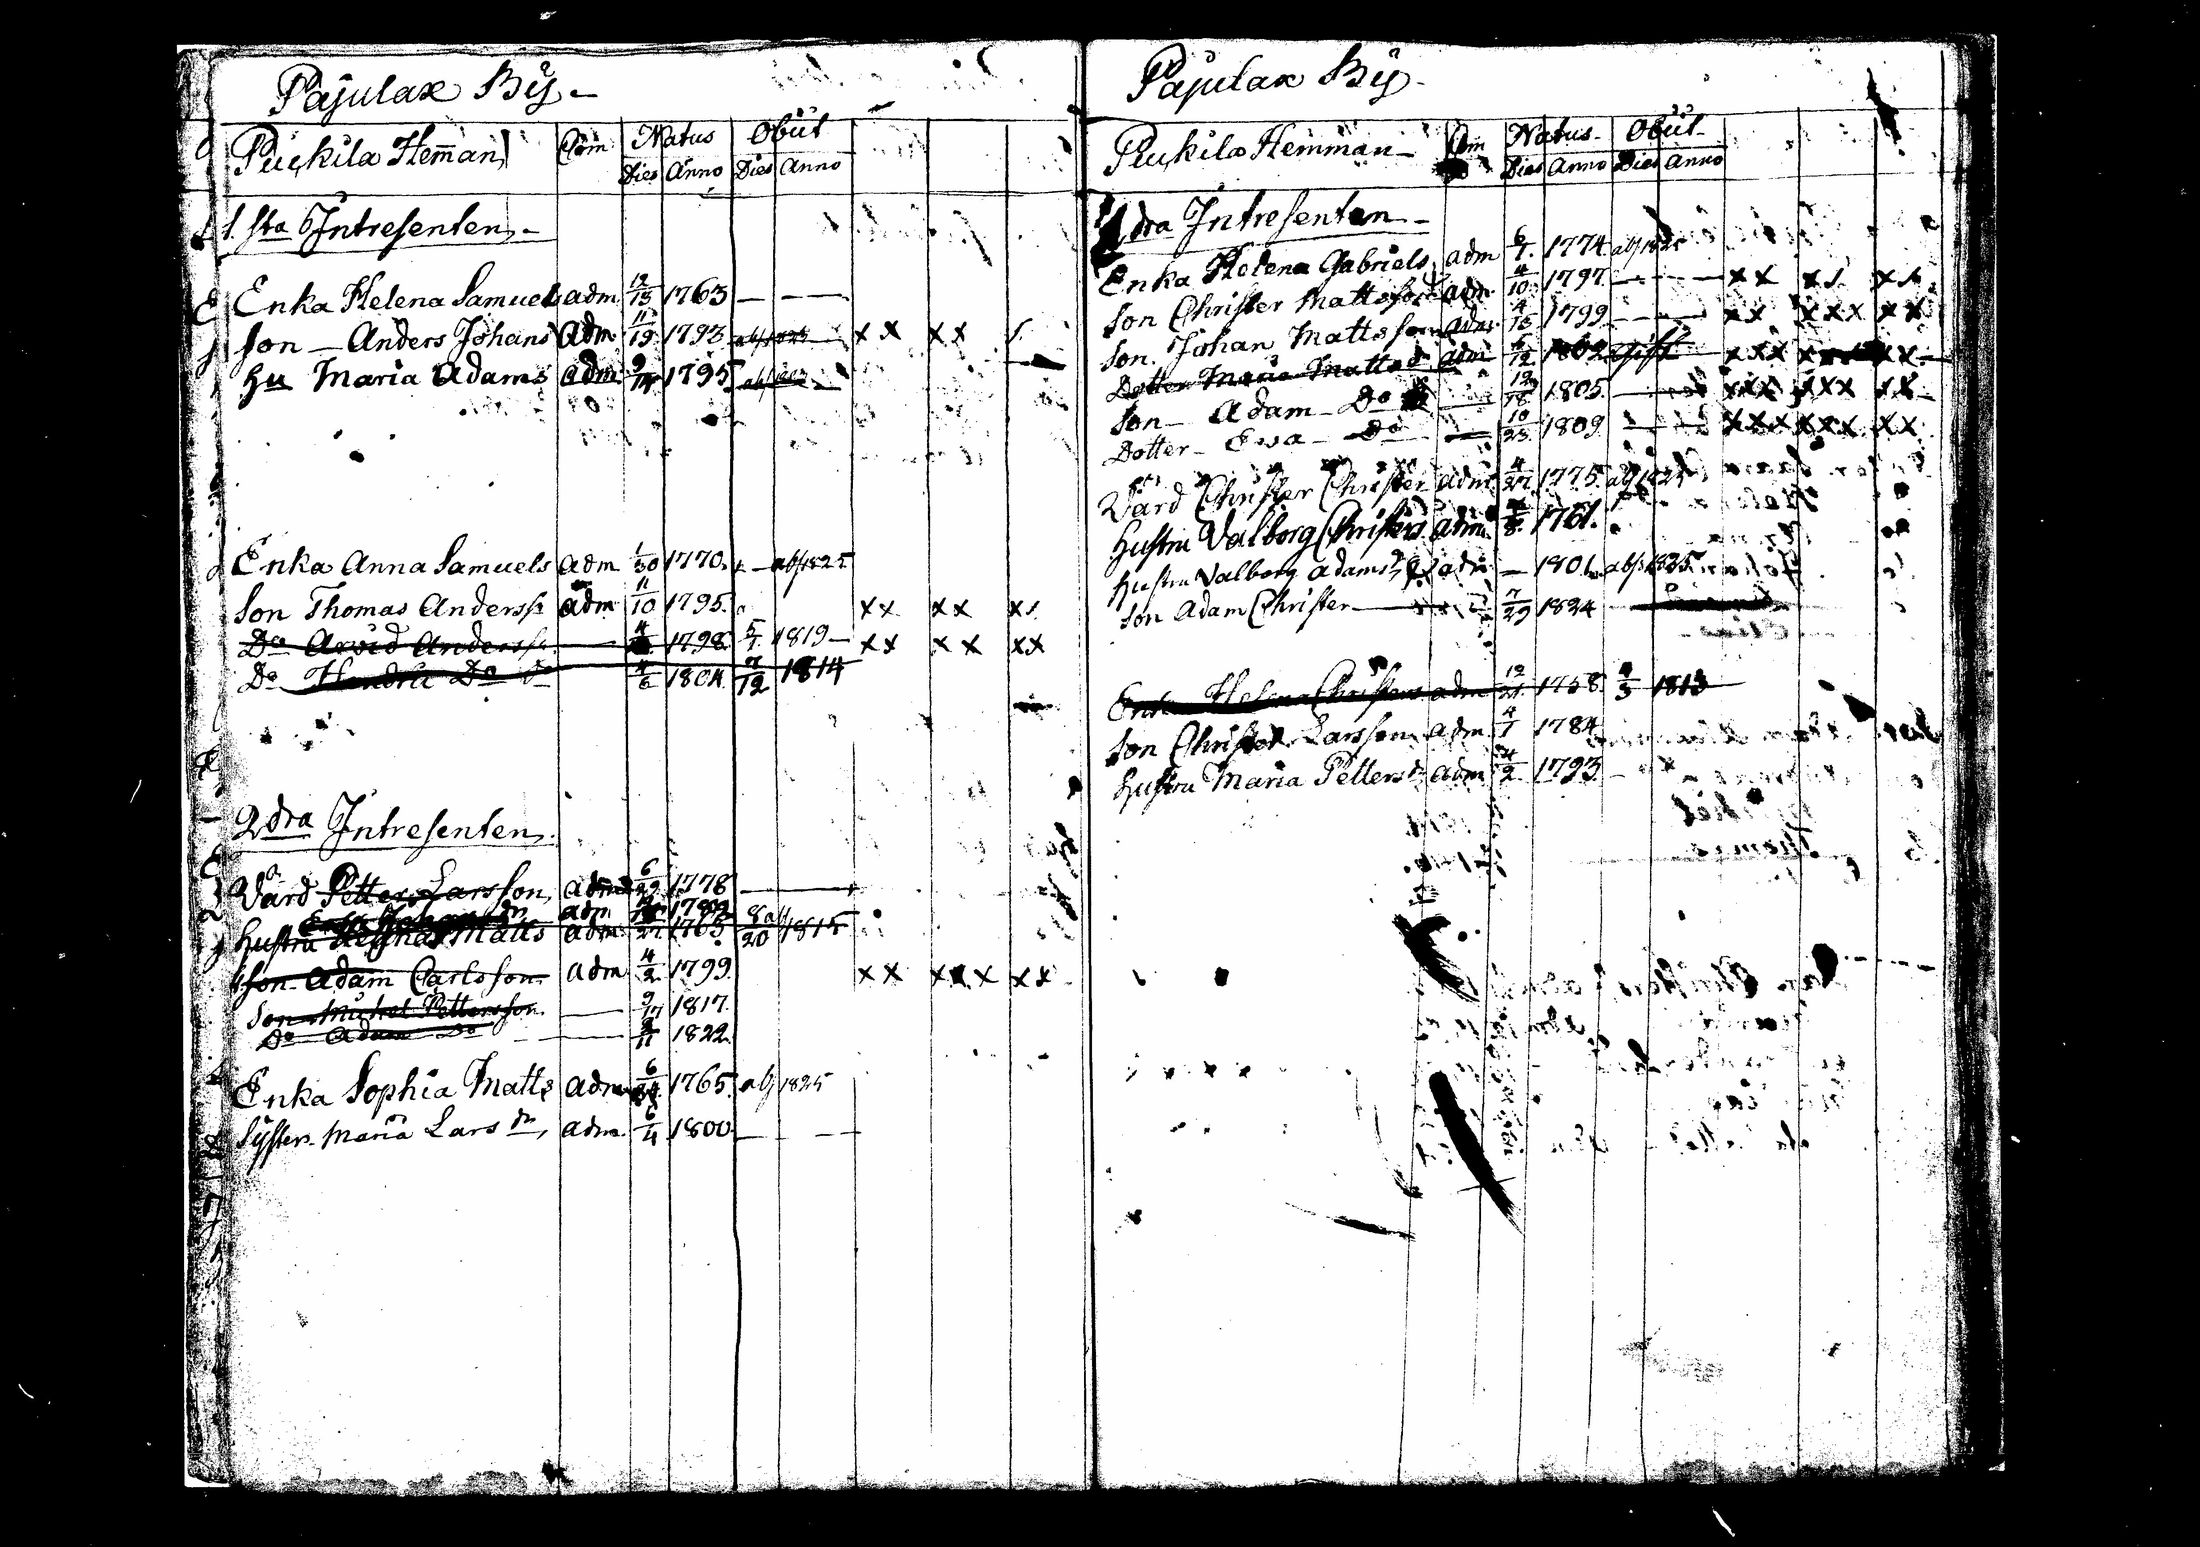 Pajulax By
Puckila Heman Com Natus Obiit
Dies Anno Dies Anno
1. sta Intresenten
Enka Helena Samuels adm 12/13 1763
Son Anders Johans Adm 11/19 1792
Hu Maria Adams adm 1795
Enka Anna Samuels adm 1/30 1770 abs 1825
Son Thomas Anderss adm 11/10 1795 xx xx
Do Arvid Anderss 1798 5/7 1819 xx xx xx
Do Do 4/6 1804 7/12 1814
2dra Intresenten
Värd Petter Larsson adm 6/29 1778
Hustru Matts adm 1763 8/20 1815
Son Adam Carlsson adm 4/2 1799 xx xxx xx
Son Michel Pettersson 9/17 1817
Do Adam Do 1822
Enka Sophia Matts adm 1765 abs 1825
Syster Maria Lars dr adm 6/4 1800
Pajulax By
Puckila Hemman Com Natus Obiit
Dies Anno Dies Anno
dra Intresenten
Enka Helena Gabriels adm 1774 abs 1825
Son Christer Mattsson adm 4/10 1797 xx
Son Johan Mattsson adm 1799 xx xxx xx
Dotter Maria Matts adm 1802 gift xxx
Son Adam Do 12/18 1805 xxx xxx
Dotter Eva Do 10/23 1809 xxx xxx xx
Värd Christer Christer adm 4/27 1775 abs 1825
Hustru Valborg Christers adm 1761
Hustru Valborg Adams adm 1801 abs 1825
Son Adam Christer 7/29 1824
Enka Helena Christers adm 1758 1813
Son Christer Larsson adm 4/7 1784
Hustru Maria Petters dr adm 4/2 1793